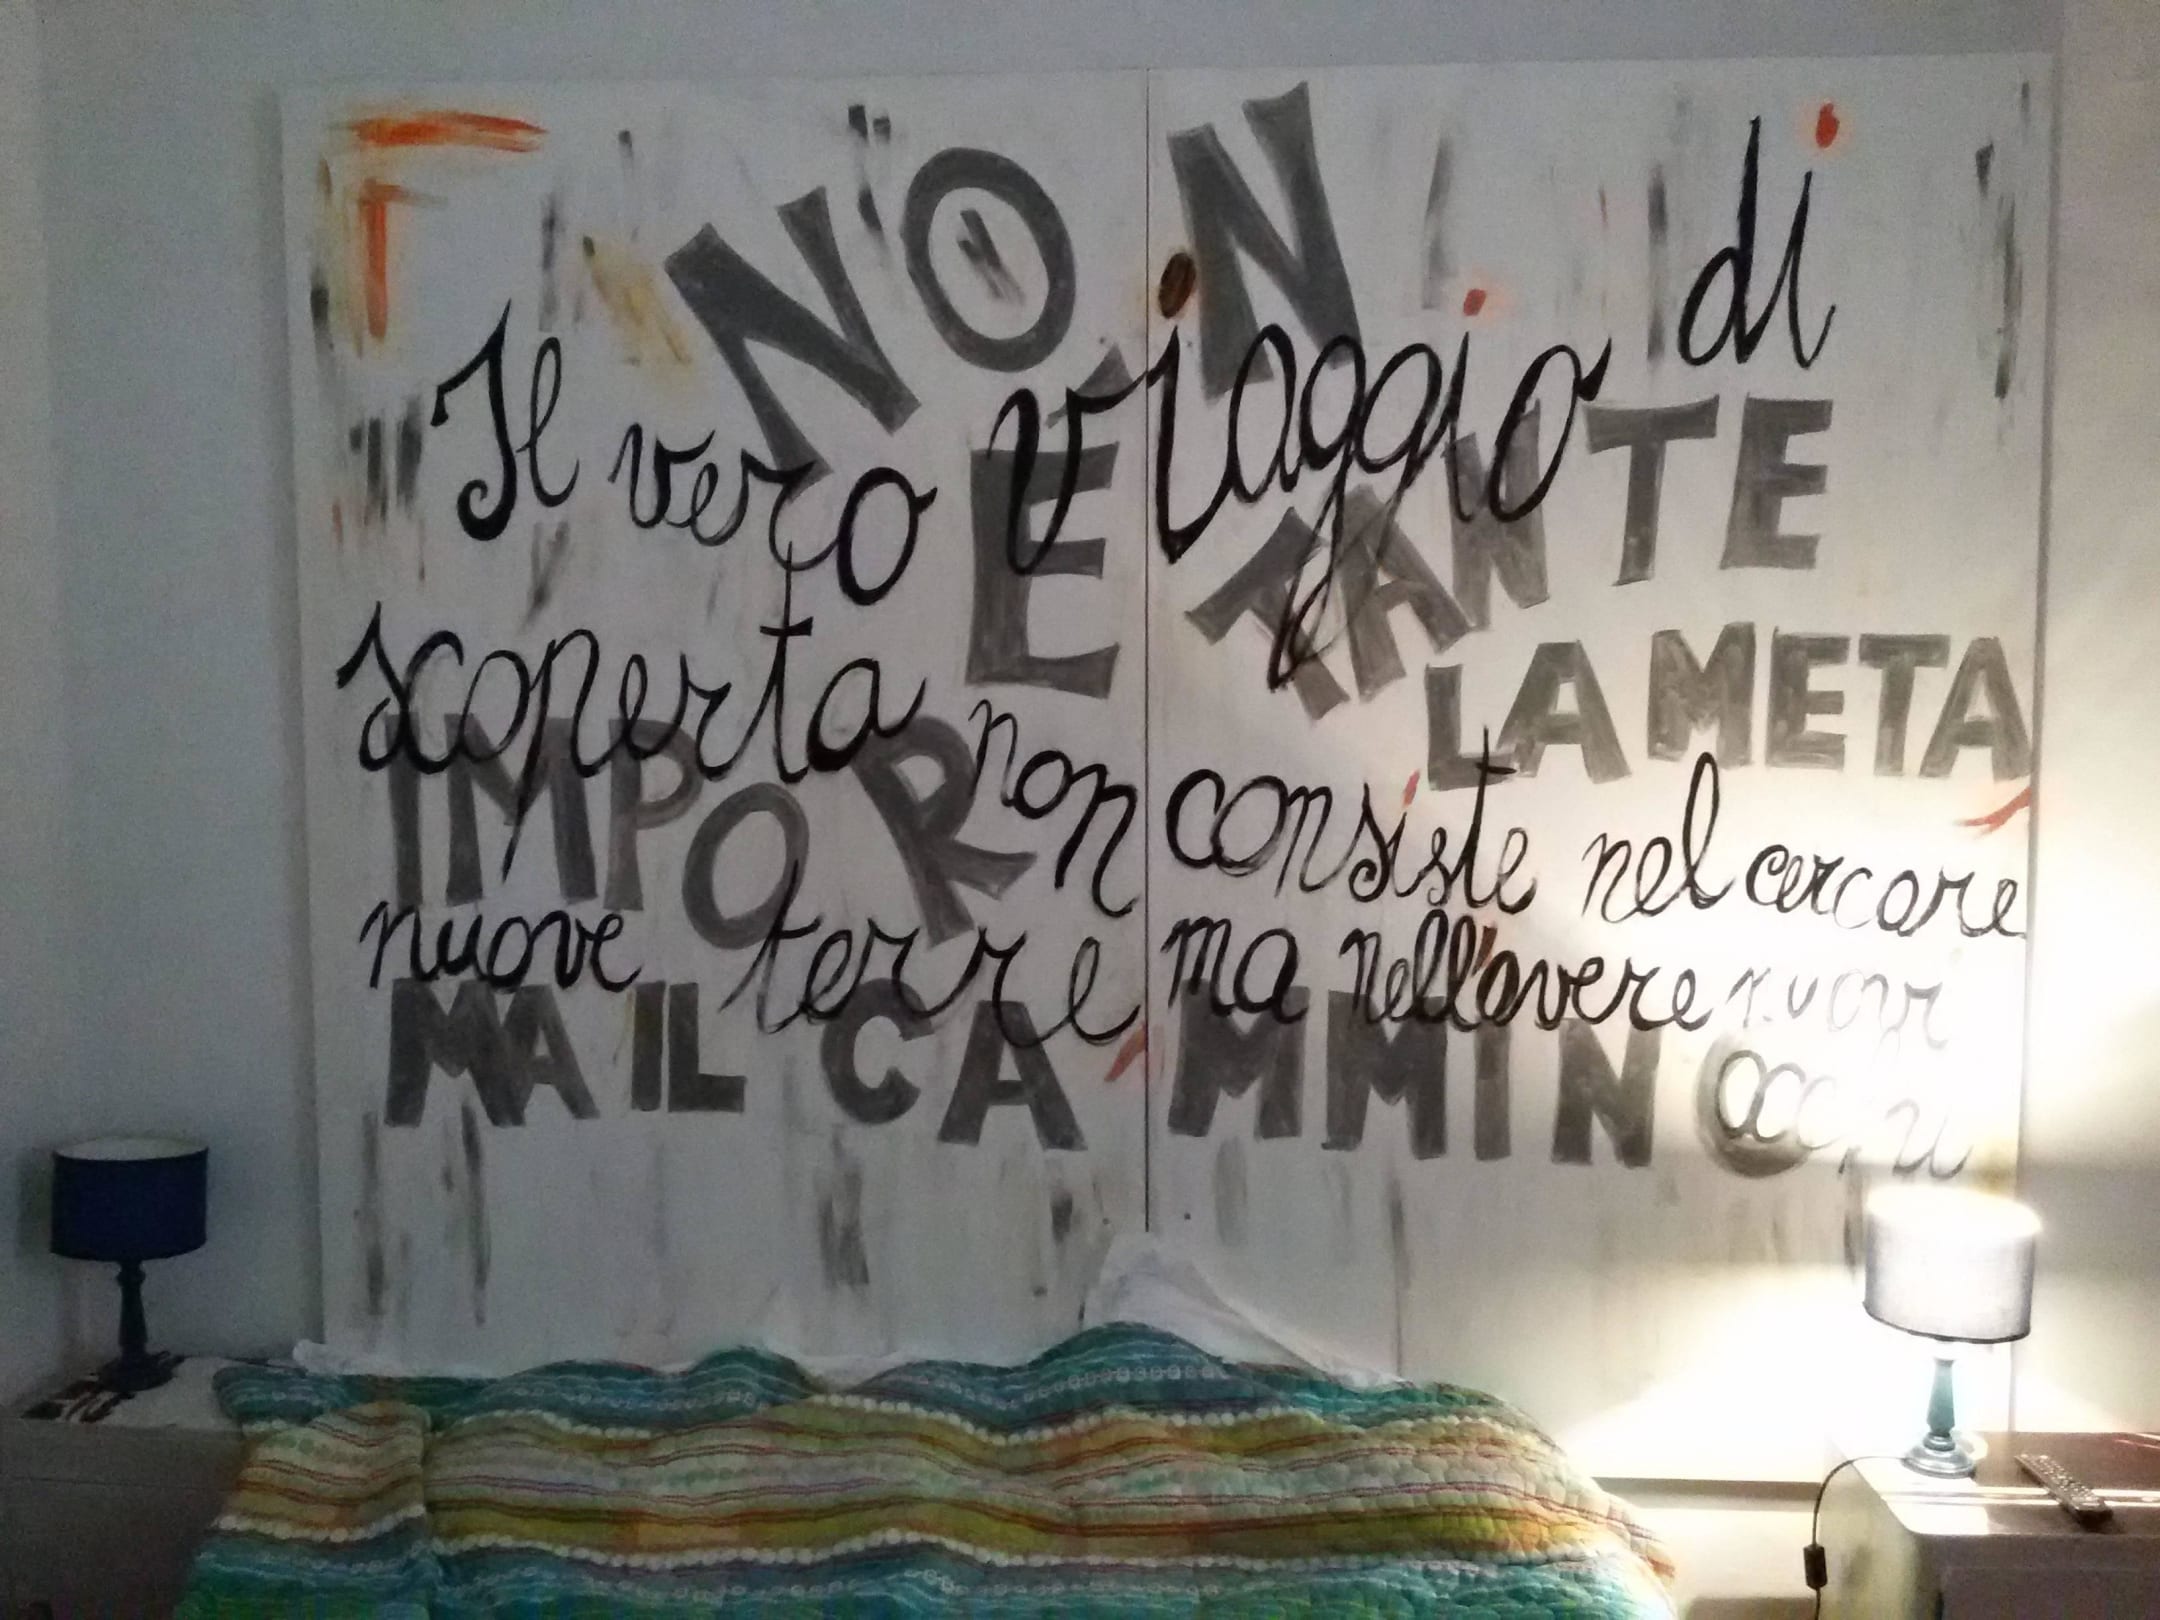 Il vero viaggio di
scoperta non consiste nel cercare
nuove terre ma nell'avere nuovi
occhi
NON
É
IMPORTANTE
LA META
MA IL CAMMINO